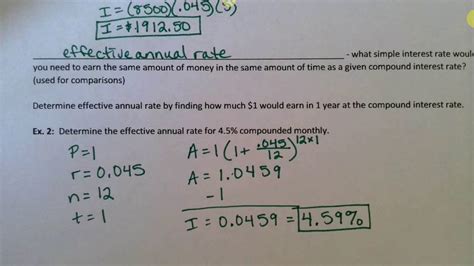 I = (8500)(.045)(5)
I = $1912.50
effective annual rate - what simple interest rate would
you need to earn the same amount of money in the same amount of time as a given compound interest rate?
(used for comparisons)
Determine effective annual rate by finding how much $1 would earn in 1 year at the compound interest rate.
Ex. 2: Determine the effective annual rate for 4.5% compounded monthly.
P=1 A=1(1+.045/12)^12×1
r=0.045 A=1.0459
n=12 -1
t=1 I=0.0459 = 4.59%